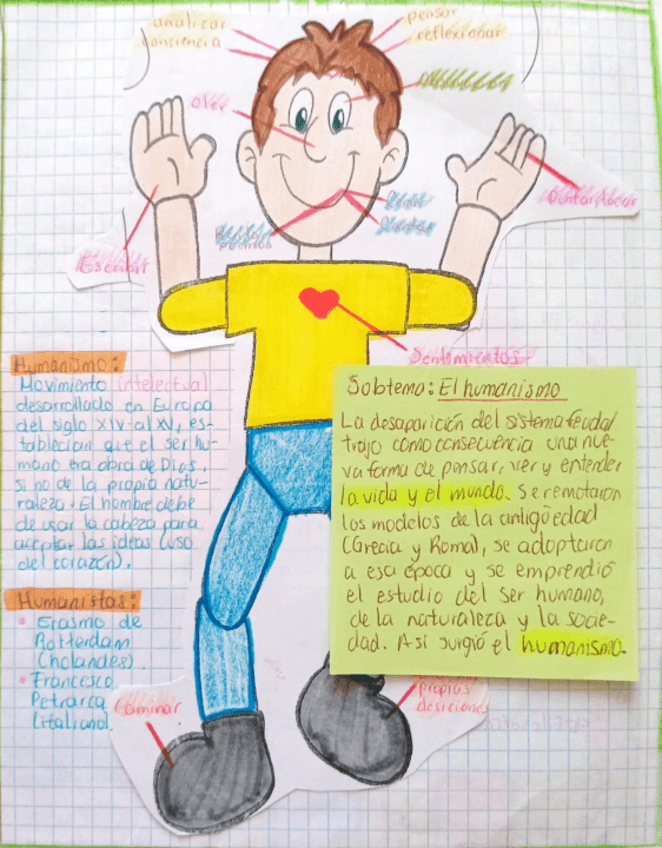 analizar
consciencia
pensar
reflexionar
oler
Escribir
Sentimientos
Humanismo:
Movimiento intelectual
desarrollado en Europa
del siglo XIV al XV, es-
tablecian que el ser hu-
mano era obra de Dios,
si no de la propia natu-
raleza. El hombre debe
de usar la cabeza para
aceptar las ideas (uso
del corazón).
Humanistas:
Erasmo de
Rotterdam
(holandes).
Francesco
Petrarca
(italiano)
Sobtema: El humanismo
La desaparición del sistema feudal
trajo como consecuencia una nue-
va forma de pensar, ver y entender
la vida y el mundo. Se remotaron
los modelos de la antigüedad
(Grecia y Roma), se adoptaron
a esa época y se emprendió
el estudio del ser humano,
de la naturaleza y la socie-
dad. Así surgió el humanismo.
Caminar
propias
desiciones